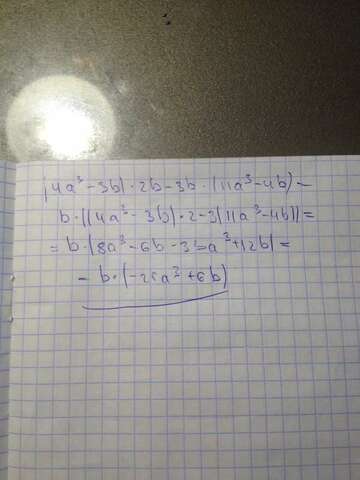 (4a³-3b)·2b-3b·(11a³-4b)-
b·((4a³-3b)·2-3(11a³-4b))=
=b·(8a³-6b-33a³+12b)=
-b·(-25a³+6b)